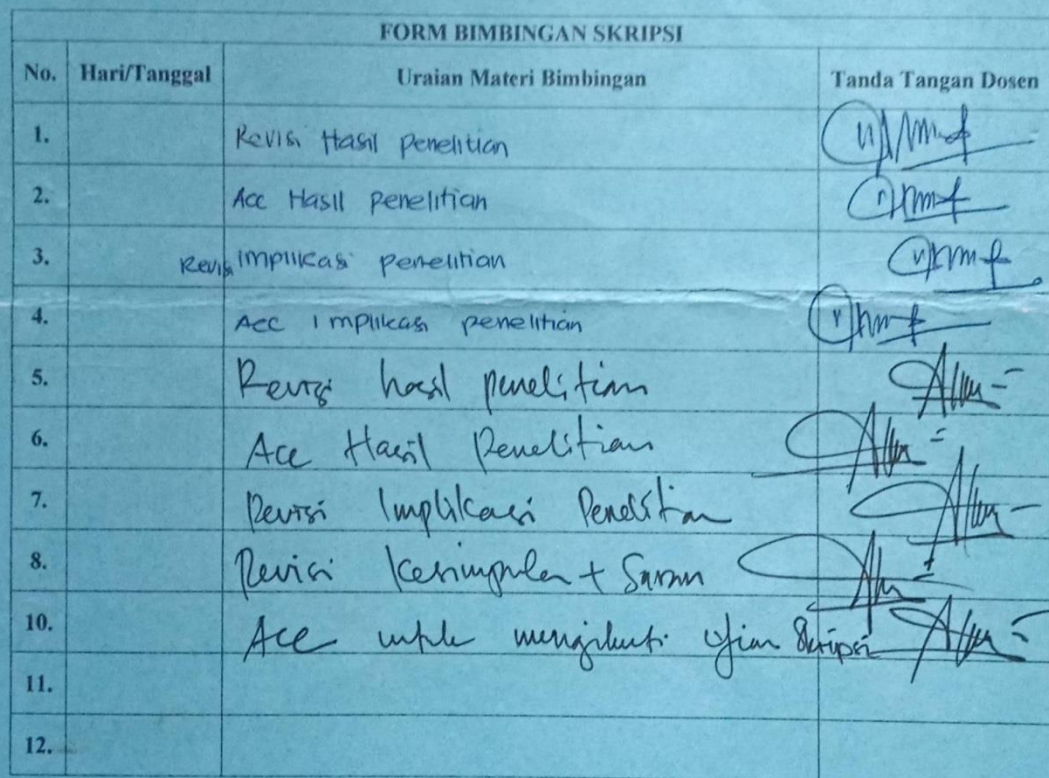 FORM BIMBINGAN SKRIPSI
No. Hari/Tanggal Uraian Materi Bimbingan Tanda Tangan Dosen
1. Revisi Hasil Penelitian
2. Acc Hasil Penelitian
3. Revisi Implikasi penelitian
4. Acc Implikasi penelitian
5. Revisi hasil penelitian
6. Acc Hasil Penelitian
7. Revisi Implikasi Penelitian
8. Revisi Kesimpulan + Saran
10. Acc untuk mengikuti ujian Skripsi
11.
12.